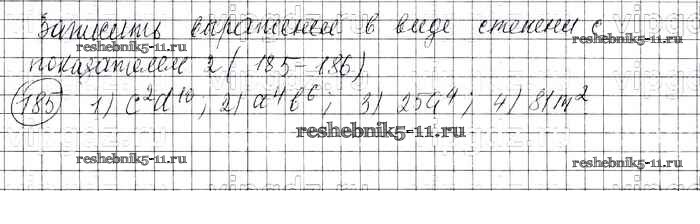 Записать выражение в виде степени с
показателем 2 (185-186)
185 1) c²d¹⁰; 2) a⁴b⁶; 3) 25a⁴; 4) 81m²
reshebnik5-11.ru
reshebnik5-11.ru
reshebnik5-11.ru
reshebnik5-11.ru
reshebnik5-11.ru